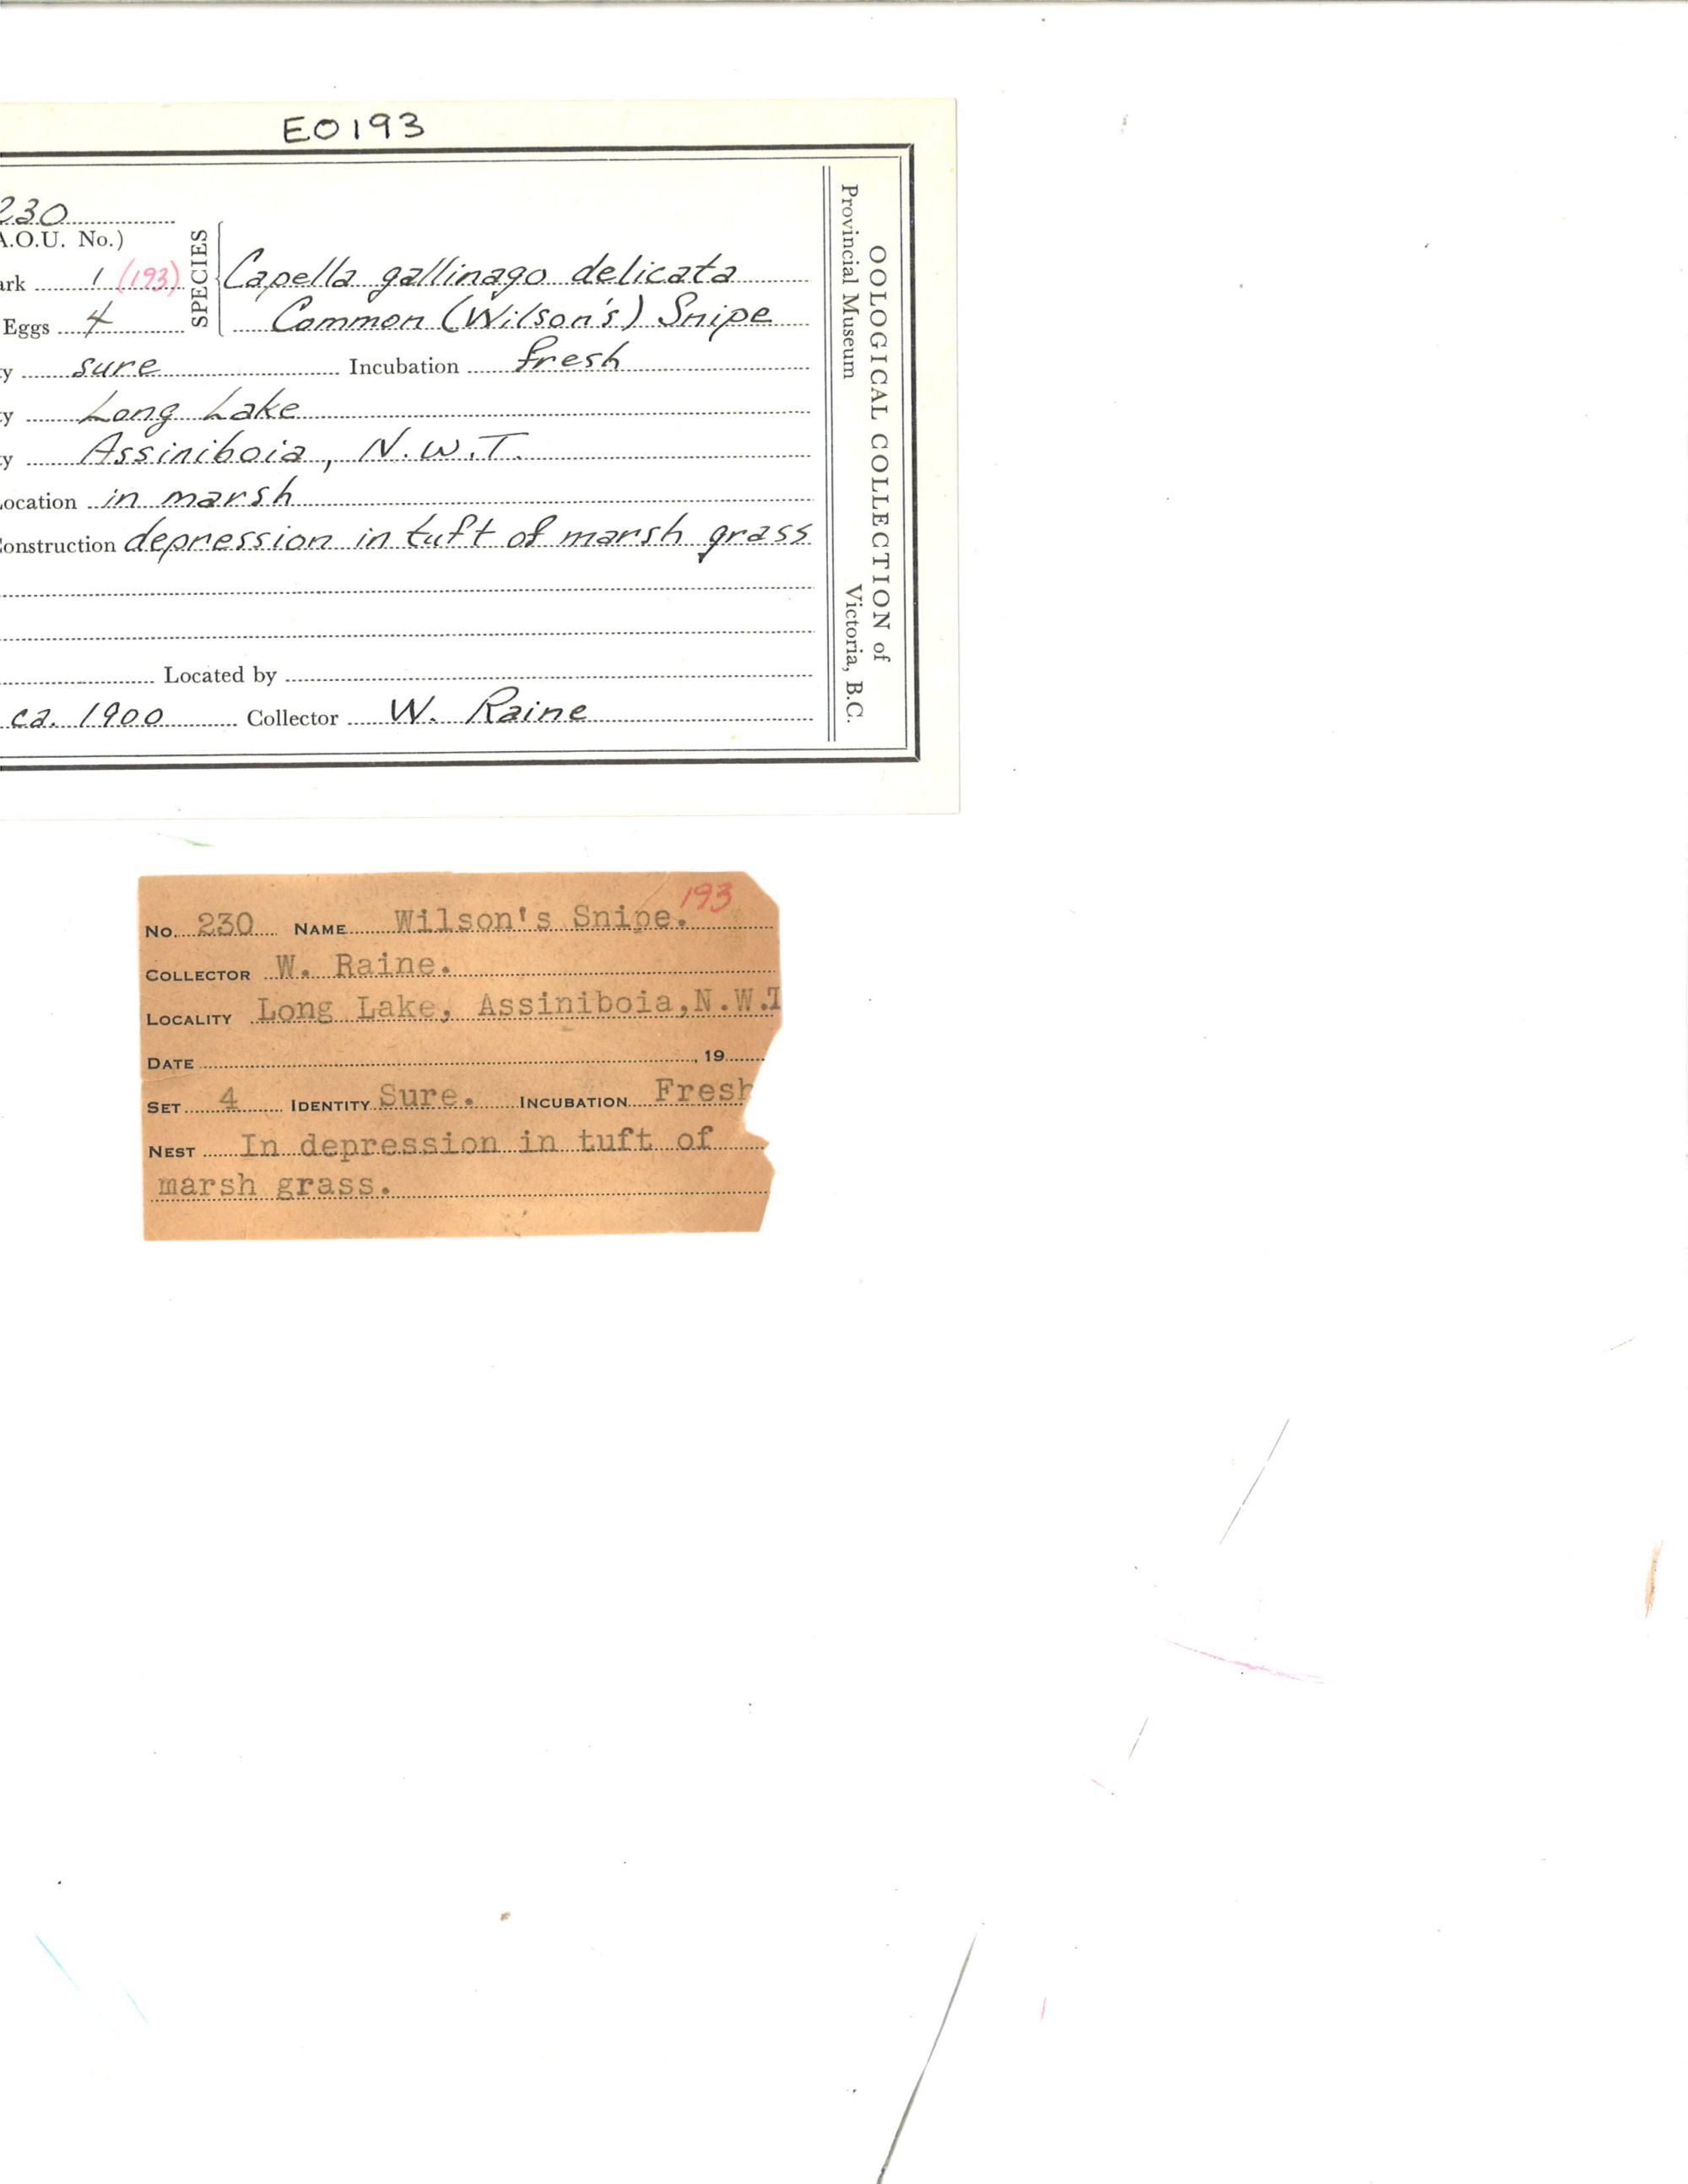 E0193
230
A.O.U. No.)
ark 1 (193) SPECIES Capella gallinago delicata
Eggs 4 Common (Wilson's) Snipe
y sure Incubation fresh
y Long Lake
y Assiniboia, N.W.T.
ocation in marsh
Construction depression in tuft of marsh grass
Located by
ca. 1900 Collector W. Raine
OOLOGICAL COLLECTION of
Provincial Museum Victoria, B.C.
193
No. 230 NAME Wilson's Snipe.
COLLECTOR W. Raine.
LOCALITY Long Lake, Assiniboia, N.W.T
DATE , 19
SET 4 IDENTITY Sure. INCUBATION Fresh
NEST In depression in tuft of
marsh grass.